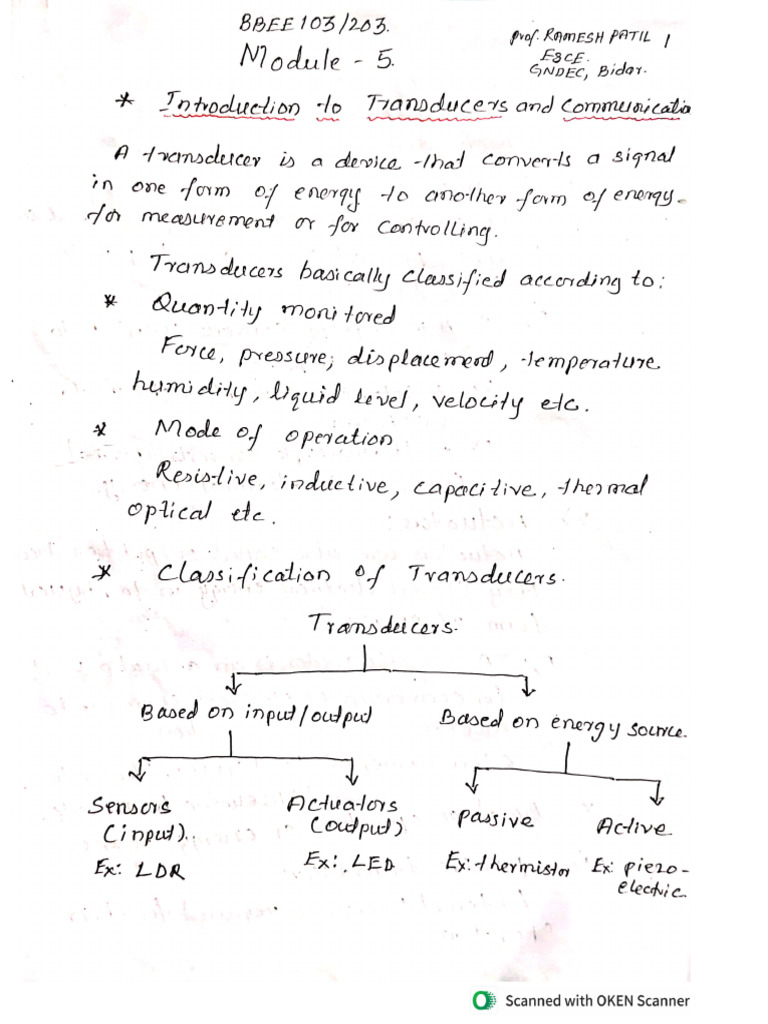 BBEE103/203.
Prof. RAMESH PATIL 1
Module - 5.
E&CE.
GNDEC, Bidar.
* Introduction to Transducers and Communicatio
A transducer is a device that converts a signal
in one form of energy to another form of energy
for measurement or for controlling.
Transducers basically classified according to:
* Quantity monitored
Force, pressure, displacement, temperature
humidity, liquid level, velocity etc.
* Mode of operation
Resistive, inductive, capacitive, thermal
optical etc.
* Classification of Transducers.
Transducers.
Based on input/output
Based on energy source.
Sensors
(input).
Ex: LDR
Actuators
(output)
Ex: LED
Passive
Ex: thermistor
Active
Ex: piezo-
electric.
Scanned with OKEN Scanner